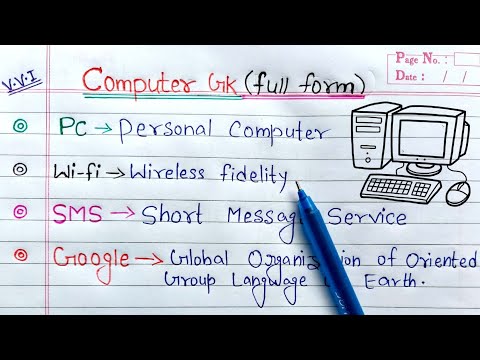 Page No.:
Date: / /
V.V.I
Computer GK (full form)
PC → Personal Computer
Wi-fi → Wireless fidelity
SMS → Short Message Service
Google → Global Organization of Oriented
Group Language Earth.